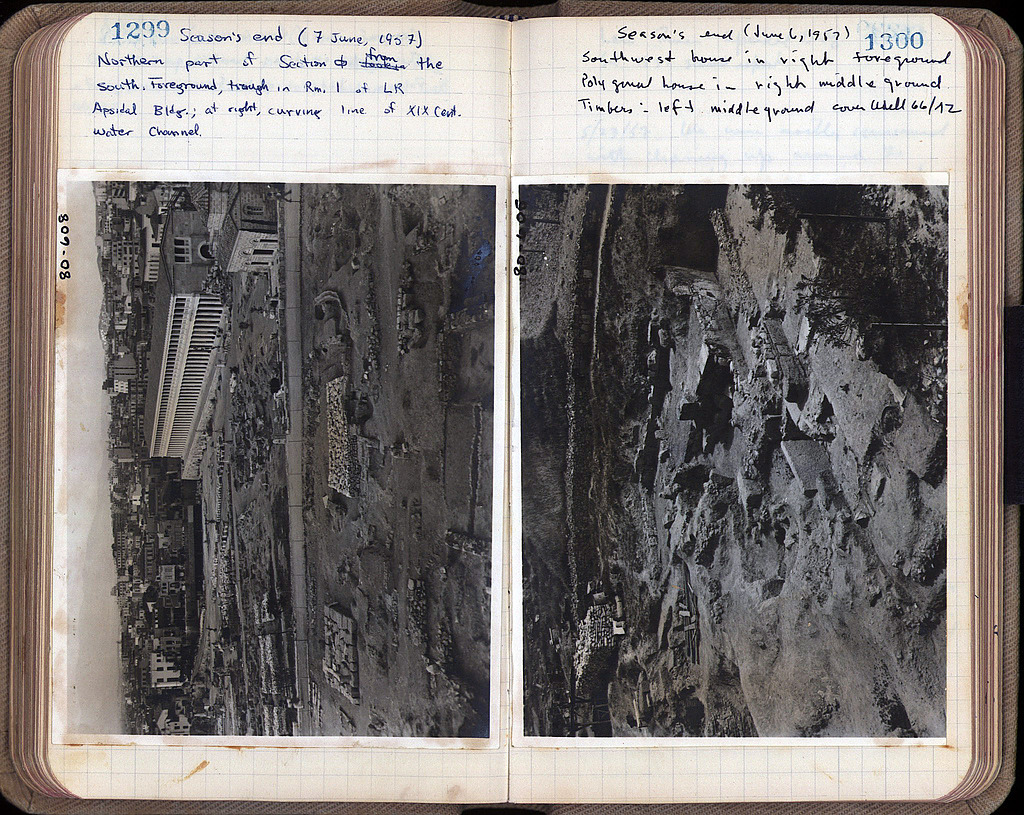 1299 Season's end (7 June, 1957)
Northern part of Section Φ from the
south. Foreground, trough in Rm. 1 of LR
Apsidal Bldg.; at right, curving line of XIX Cent.
water channel.
809-08
Season's end (June 6, 1957) 1300
Southwest house in right foreground
Polygonal house in right middle ground
Timbers in left middleground cover Well 66/12